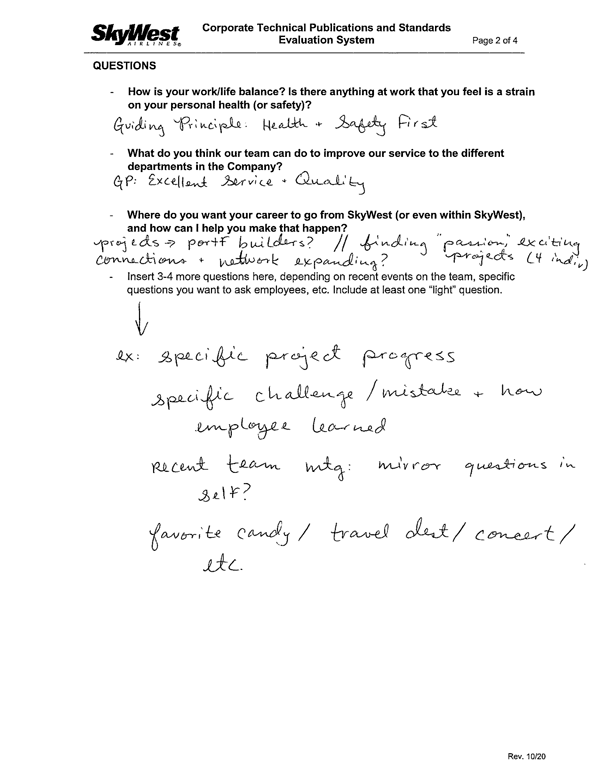 SkyWest
AIRLINES®
Corporate Technical Publications and Standards
Evaluation System
Page 2 of 4
QUESTIONS
- How is your work/life balance? Is there anything at work that you feel is a strain
on your personal health (or safety)?
Guiding Principle: Health + Safety First
- What do you think our team can do to improve our service to the different
departments in the Company?
GP: Excellent Service + Quality
- Where do you want your career to go from SkyWest (or even within SkyWest),
and how can I help you make that happen?
projects → portf builders? // finding "passion," exciting
connections + network expanding? projects (4 indiv)
- Insert 3-4 more questions here, depending on recent events on the team, specific
questions you want to ask employees, etc. Include at least one "light" question.
↓
ex: specific project progress
specific challenge / mistake + how
employee learned
recent team mtg: mirror questions in
self?
favorite candy / travel dest / concert /
etc.
Rev. 10/20